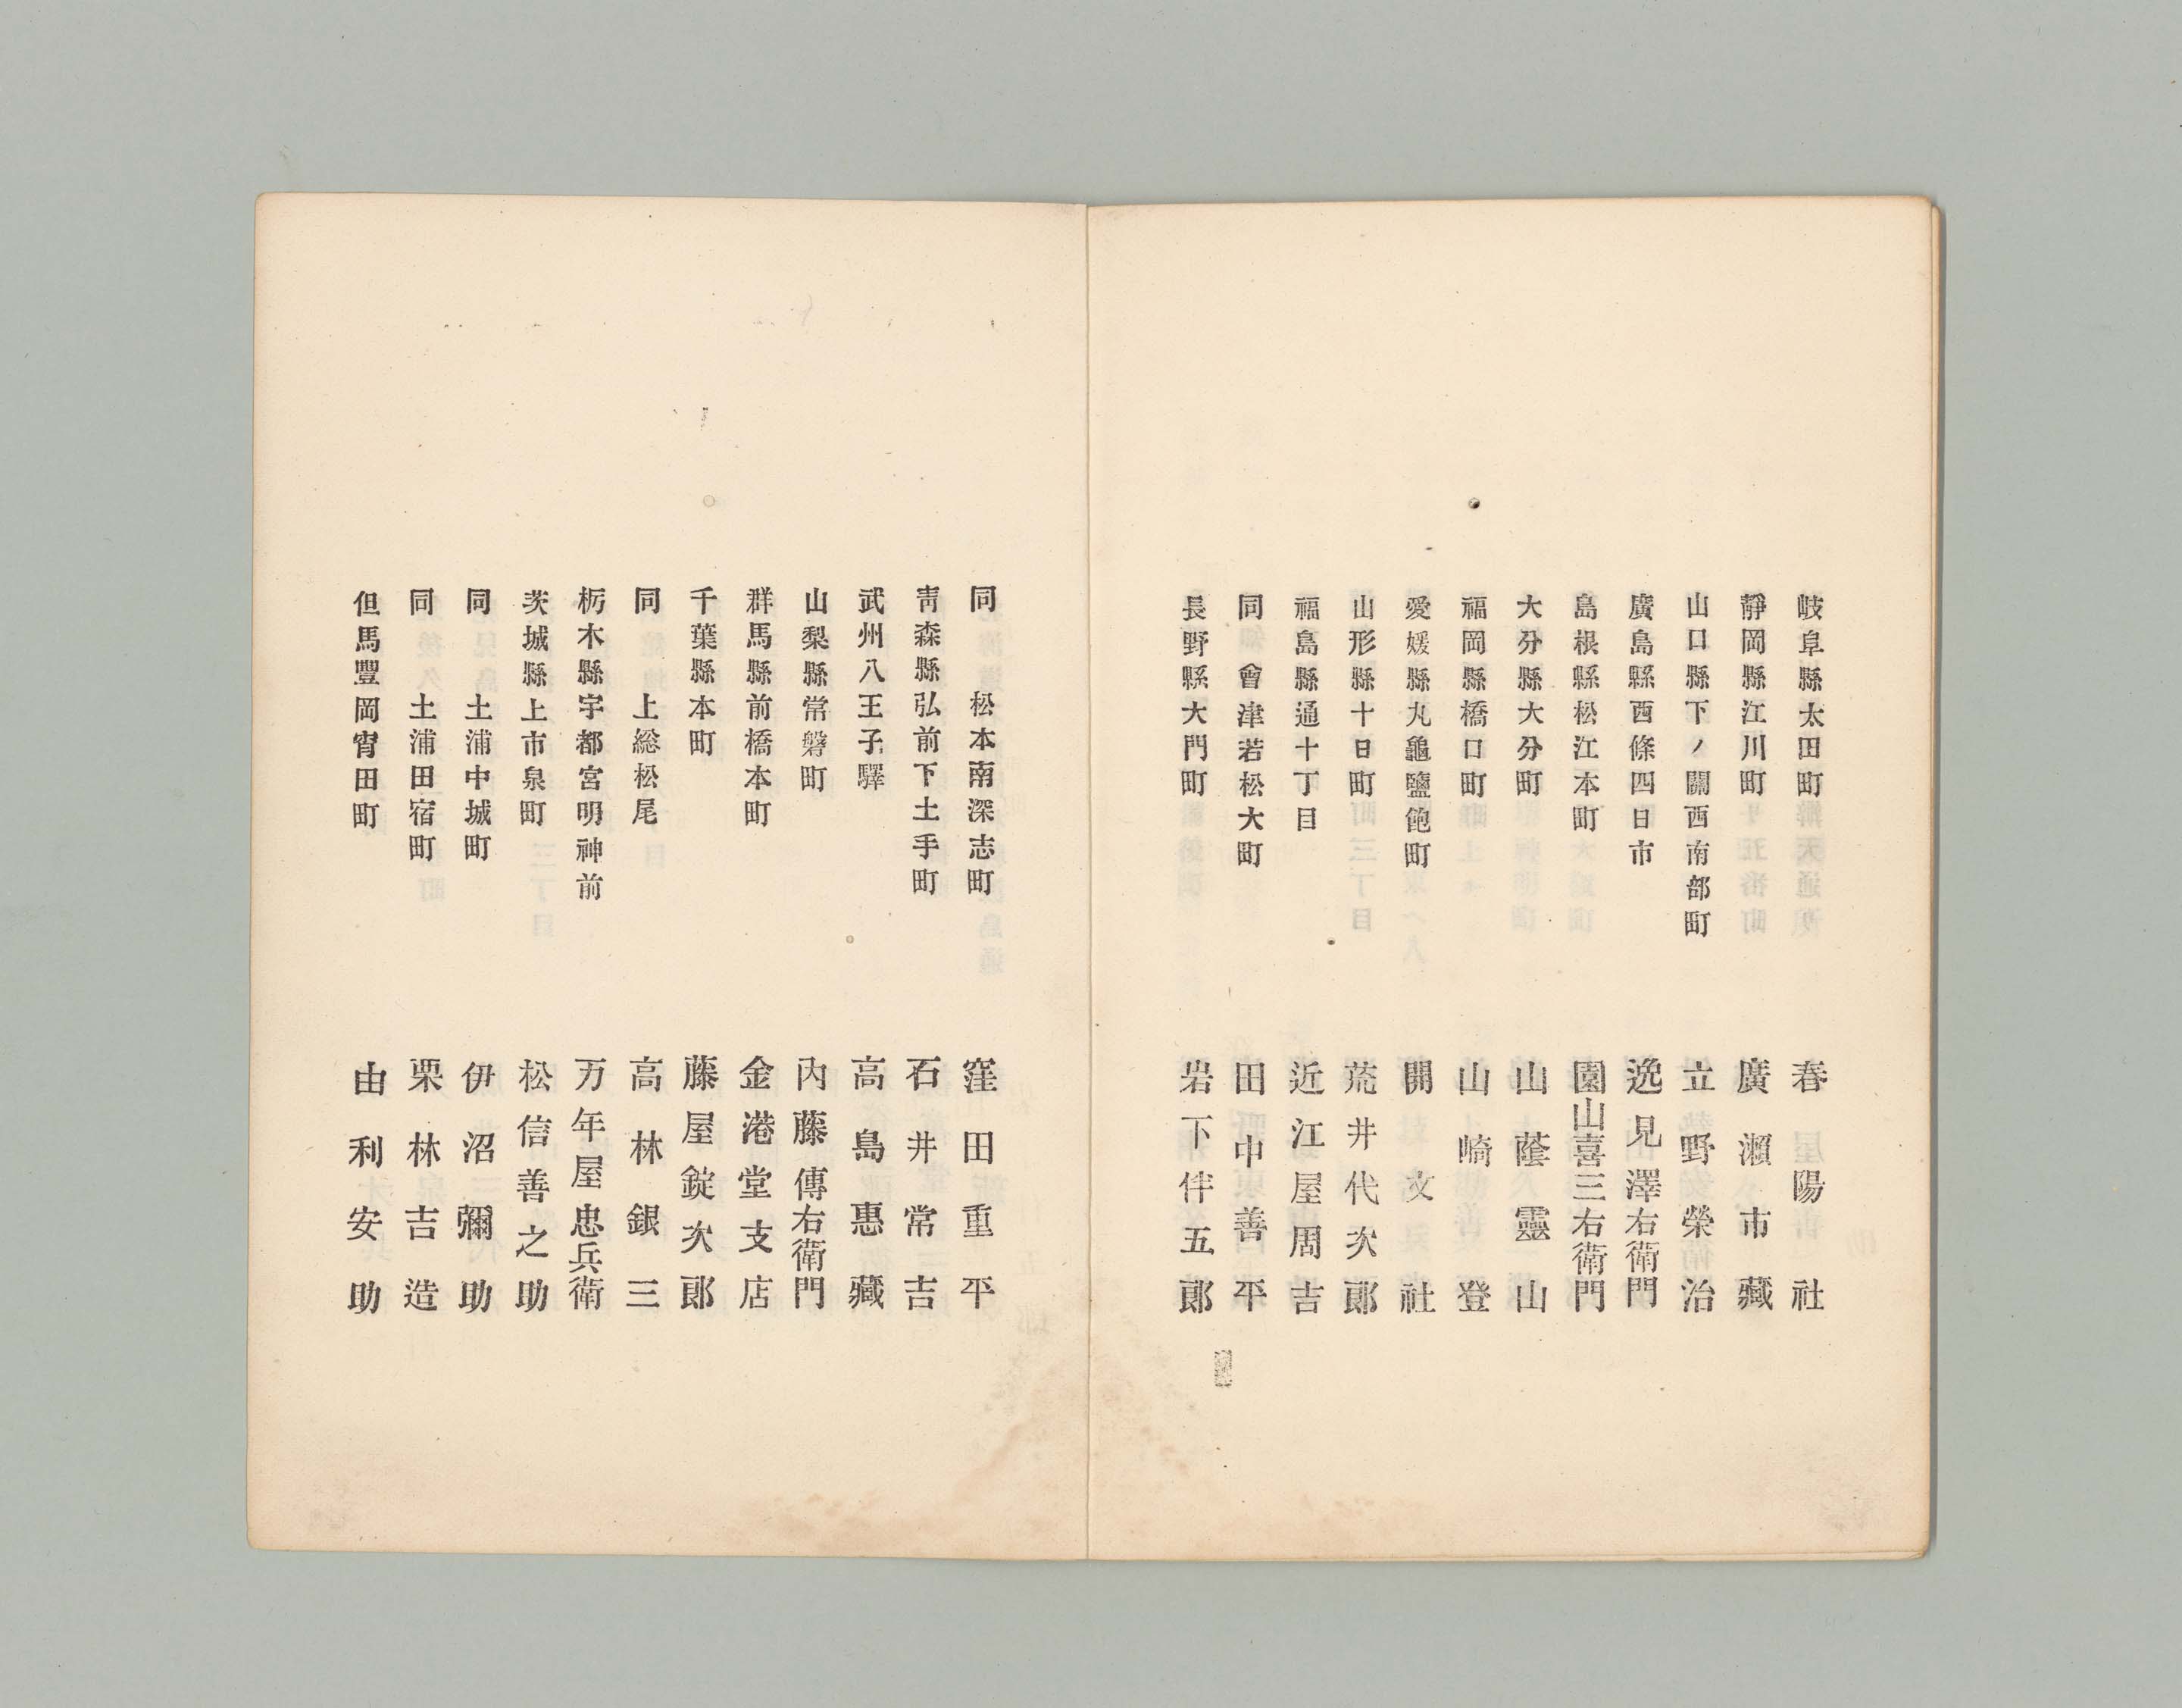 岐阜縣太田町 春陽社
靜岡縣江川町 廣瀨市藏
山口縣下ノ關西南部町 立野榮治
廣島縣西條四日市 逸見澤右衛門
島根縣松江本町 園山喜三右衛門
大分縣大分町 山蔭靈山
福岡縣橋口町 山崎登
愛媛縣丸龜鹽飽町 開文社
山形縣十日町 荒井代次郞
福島縣通十丁目 近江屋周吉
同 會津若松大町 田中善平
長野縣大門町 岩下伴五郞
同 松本南深志町 窪田重平
靑森縣弘前下土手町 石井常吉
武州八王子驛 高島惠藏
山梨縣常磐町 內藤傳右衛門
群馬縣前橋本町 金港堂支店
千葉縣本町 藤屋錠次郞
同 上総松尾 高林銀三
栃木縣宇都宮明神前 万年屋忠兵衛
茨城縣上市泉町 松信善之助
同 土浦中城町 伊沼彌助
同 土浦田宿町 栗林吉造
但馬豐岡宵田町 由利安助